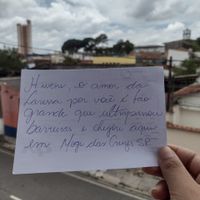 Hiven, o amor da
Larissa por você é tão
grande que ultrapassou
barreiras e chegou aqui
em Mogi das Cruzes SP